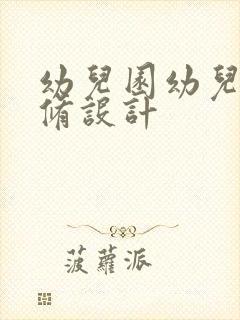 幼兒園幼兒
脩設計
菠蘿派